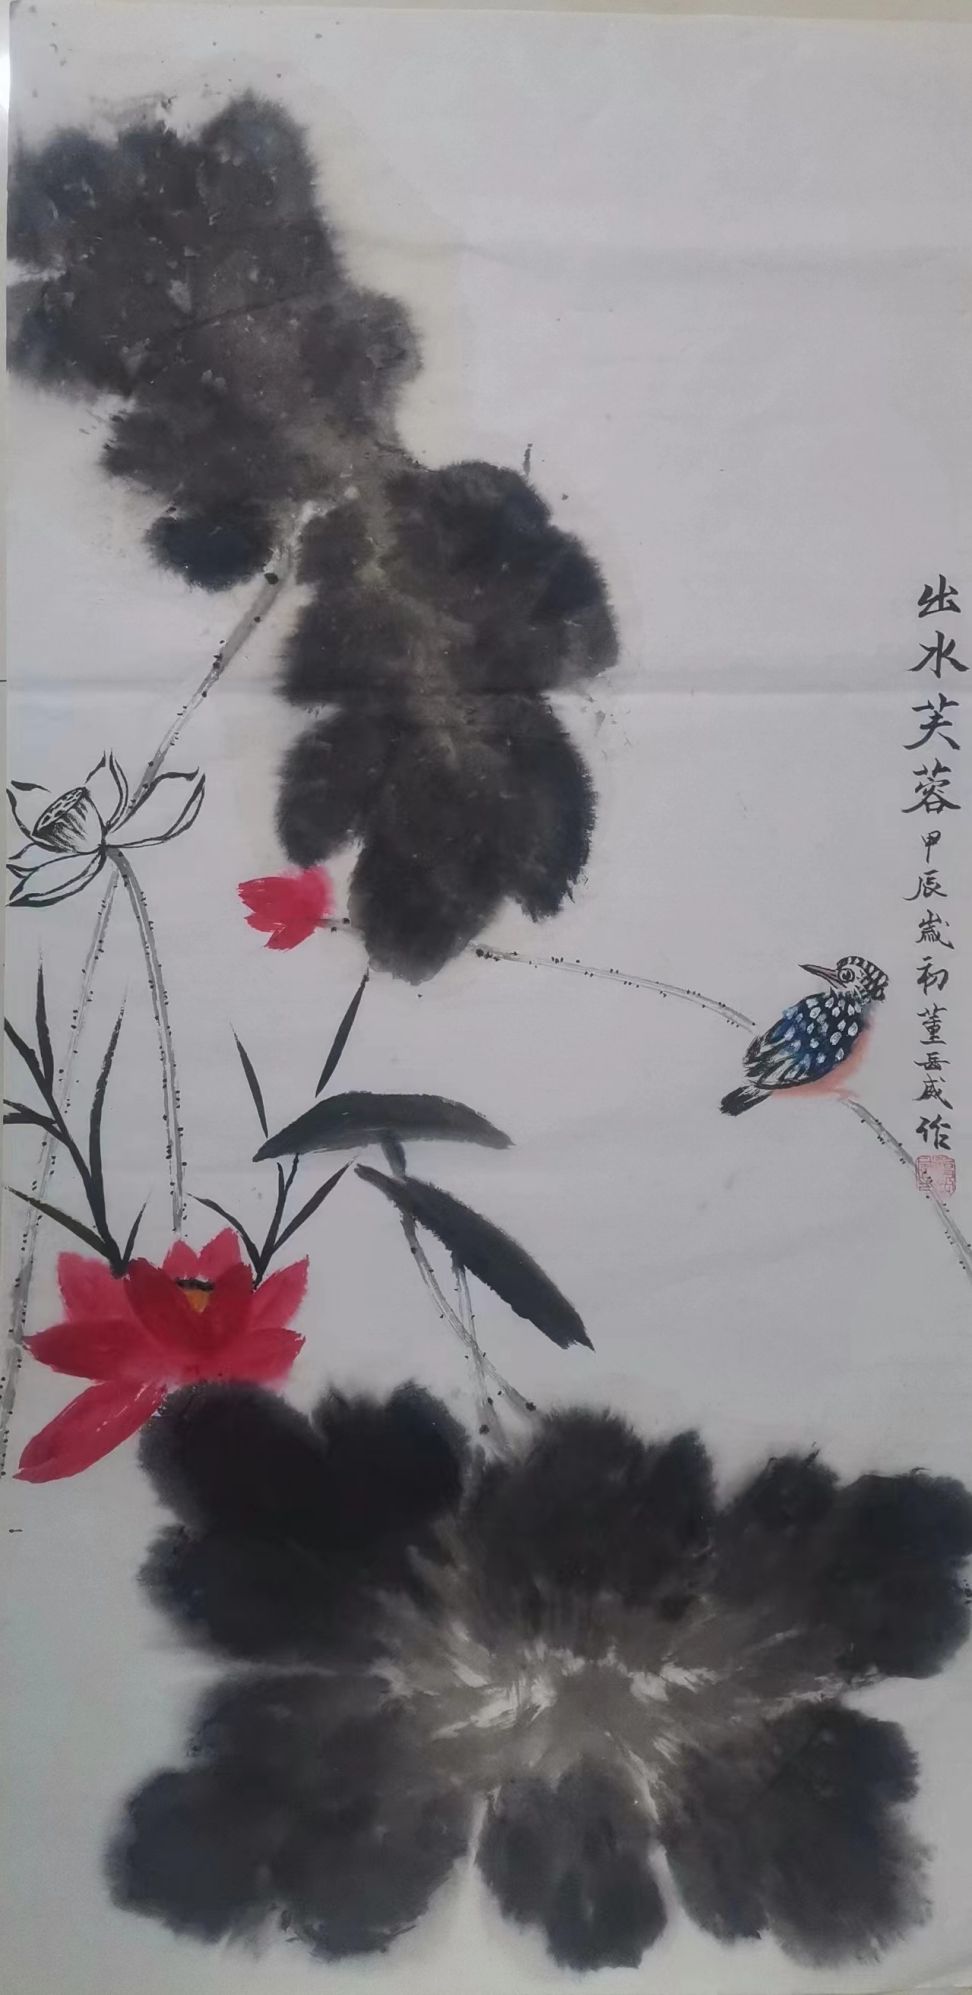 出水芙蓉甲辰岁初董岳成作